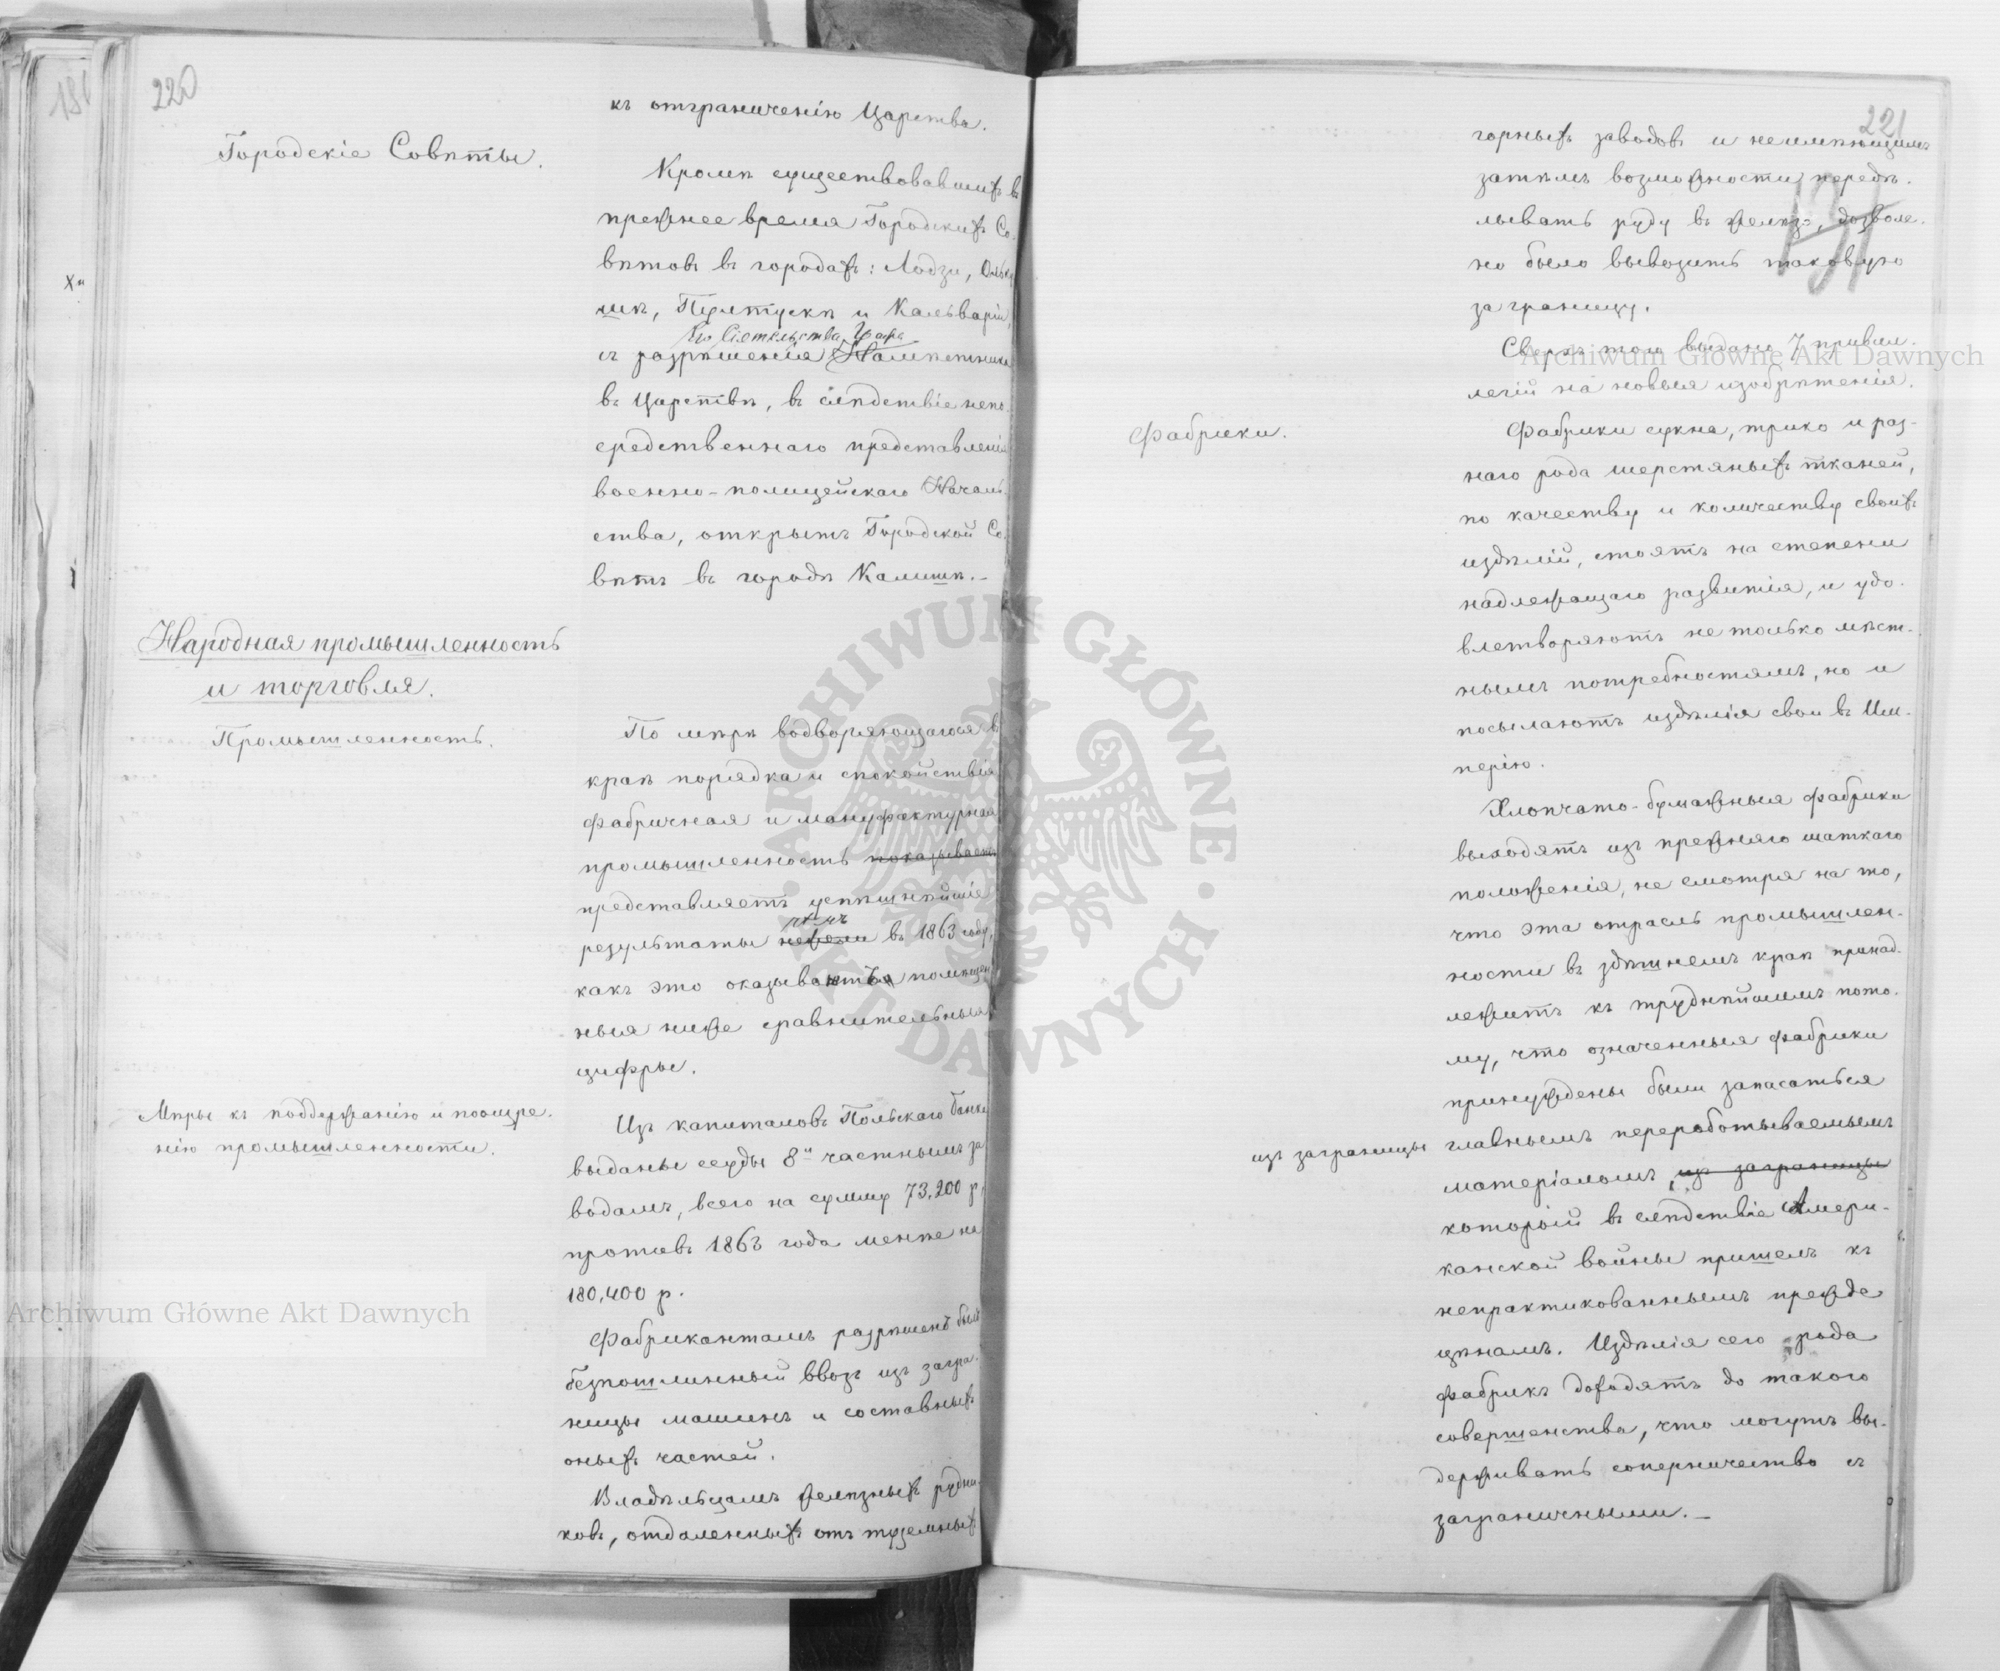 220
къ отграниченію Царства.
Городскіе Совѣты.
Кромѣ существовавшихъ въ
прежнее время Городскихъ Со-
вѣтовъ въ городахъ: Лодзи, Ольку-
шѣ, Пултускѣ и Кальваріи,
Его Сіятельства Графа
съ разрѣшенія Намѣстника
въ Царствѣ, въ слѣдствіе непо-
средственнаго представленія
военно-полицейскаго Началь-
ства, открытъ Городской Со-
вѣтъ въ городѣ Калишѣ.-
Народная промышленность
и торговля.
Промышленность.
По мѣрѣ водворяющагося въ
краѣ порядка и спокойствія
фабричная и мануфактурная
промышленность показываетъ
представляетъ успѣшнѣйшіе
результаты нежели в 1863 году,
какъ это оказываютъ помѣщен-
ныя ниже сравнительныя
цифры.
Мѣры къ поддержанію и поощре-
нію промышленности.
Изъ капиталовъ Польскаго банка
выданы ссуды 8и частнымъ за
водамъ, всего на сумму 73,200 р.
противъ 1863 года менѣе на
180,400 р.
Фабрикантамъ разрѣшенъ былъ
безпошлинный ввозъ изъ загра-
ницы машинъ и составныхъ
оныхъ частей.
Владѣльцамъ желѣзныхъ рудни-
ковъ, отдаленныхъ отъ туземныхъ
221
горныхъ заводовъ и неимѣющимъ
затѣмъ возможности передѣ-
лывать руду въ желѣзо, дозволе-
но было вывозить таковую
за границу.
Сверхъ того выдано 7 приви-
легій на новыя изобрѣтенія.
Фабрики.
Фабрики сукна, трико и раз-
наго рода шерстяныхъ тканей,
по качеству и количеству своихъ
издѣлій, стоятъ на степени
надлежащаго развитія, и удо-
влетворяютъ не только мѣст-
нымъ потребностямъ, но и
посылаютъ издѣлія свои въ Им-
перію.
Хлопчато-бумажныя фабрики
выходятъ изъ прежняго шаткаго
положенія, не смотря на то,
что эта отрасль промышлен-
ности въ здѣшнемъ краѣ принад-
лежитъ къ труднѣйшимъ пото-
му, что означенныя фабрики
принуждены были запасаться
изъ заграницы главнымъ переработываемымъ
матеріаломъ, изъ заграницы
который въ слѣдствіе Амери-
канской войны пришелъ къ
непрактикованнымъ прежде
цѣнамъ. Издѣлія сего рода
фабрикъ доходятъ до такого
совершенства, что могутъ вы-
держивать соперничество съ
заграничными.-
Archiwum Główne Akt Dawnych
Archiwum Główne Akt Dawnych
ARCHIWUM GŁÓWNE AKT DAWNYCH